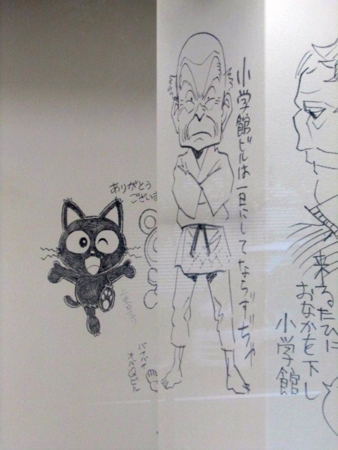 ありがとう
ござい
小学館ビルは一日にしてならずぢゃ
来るたびに
おなかを下し
小学館